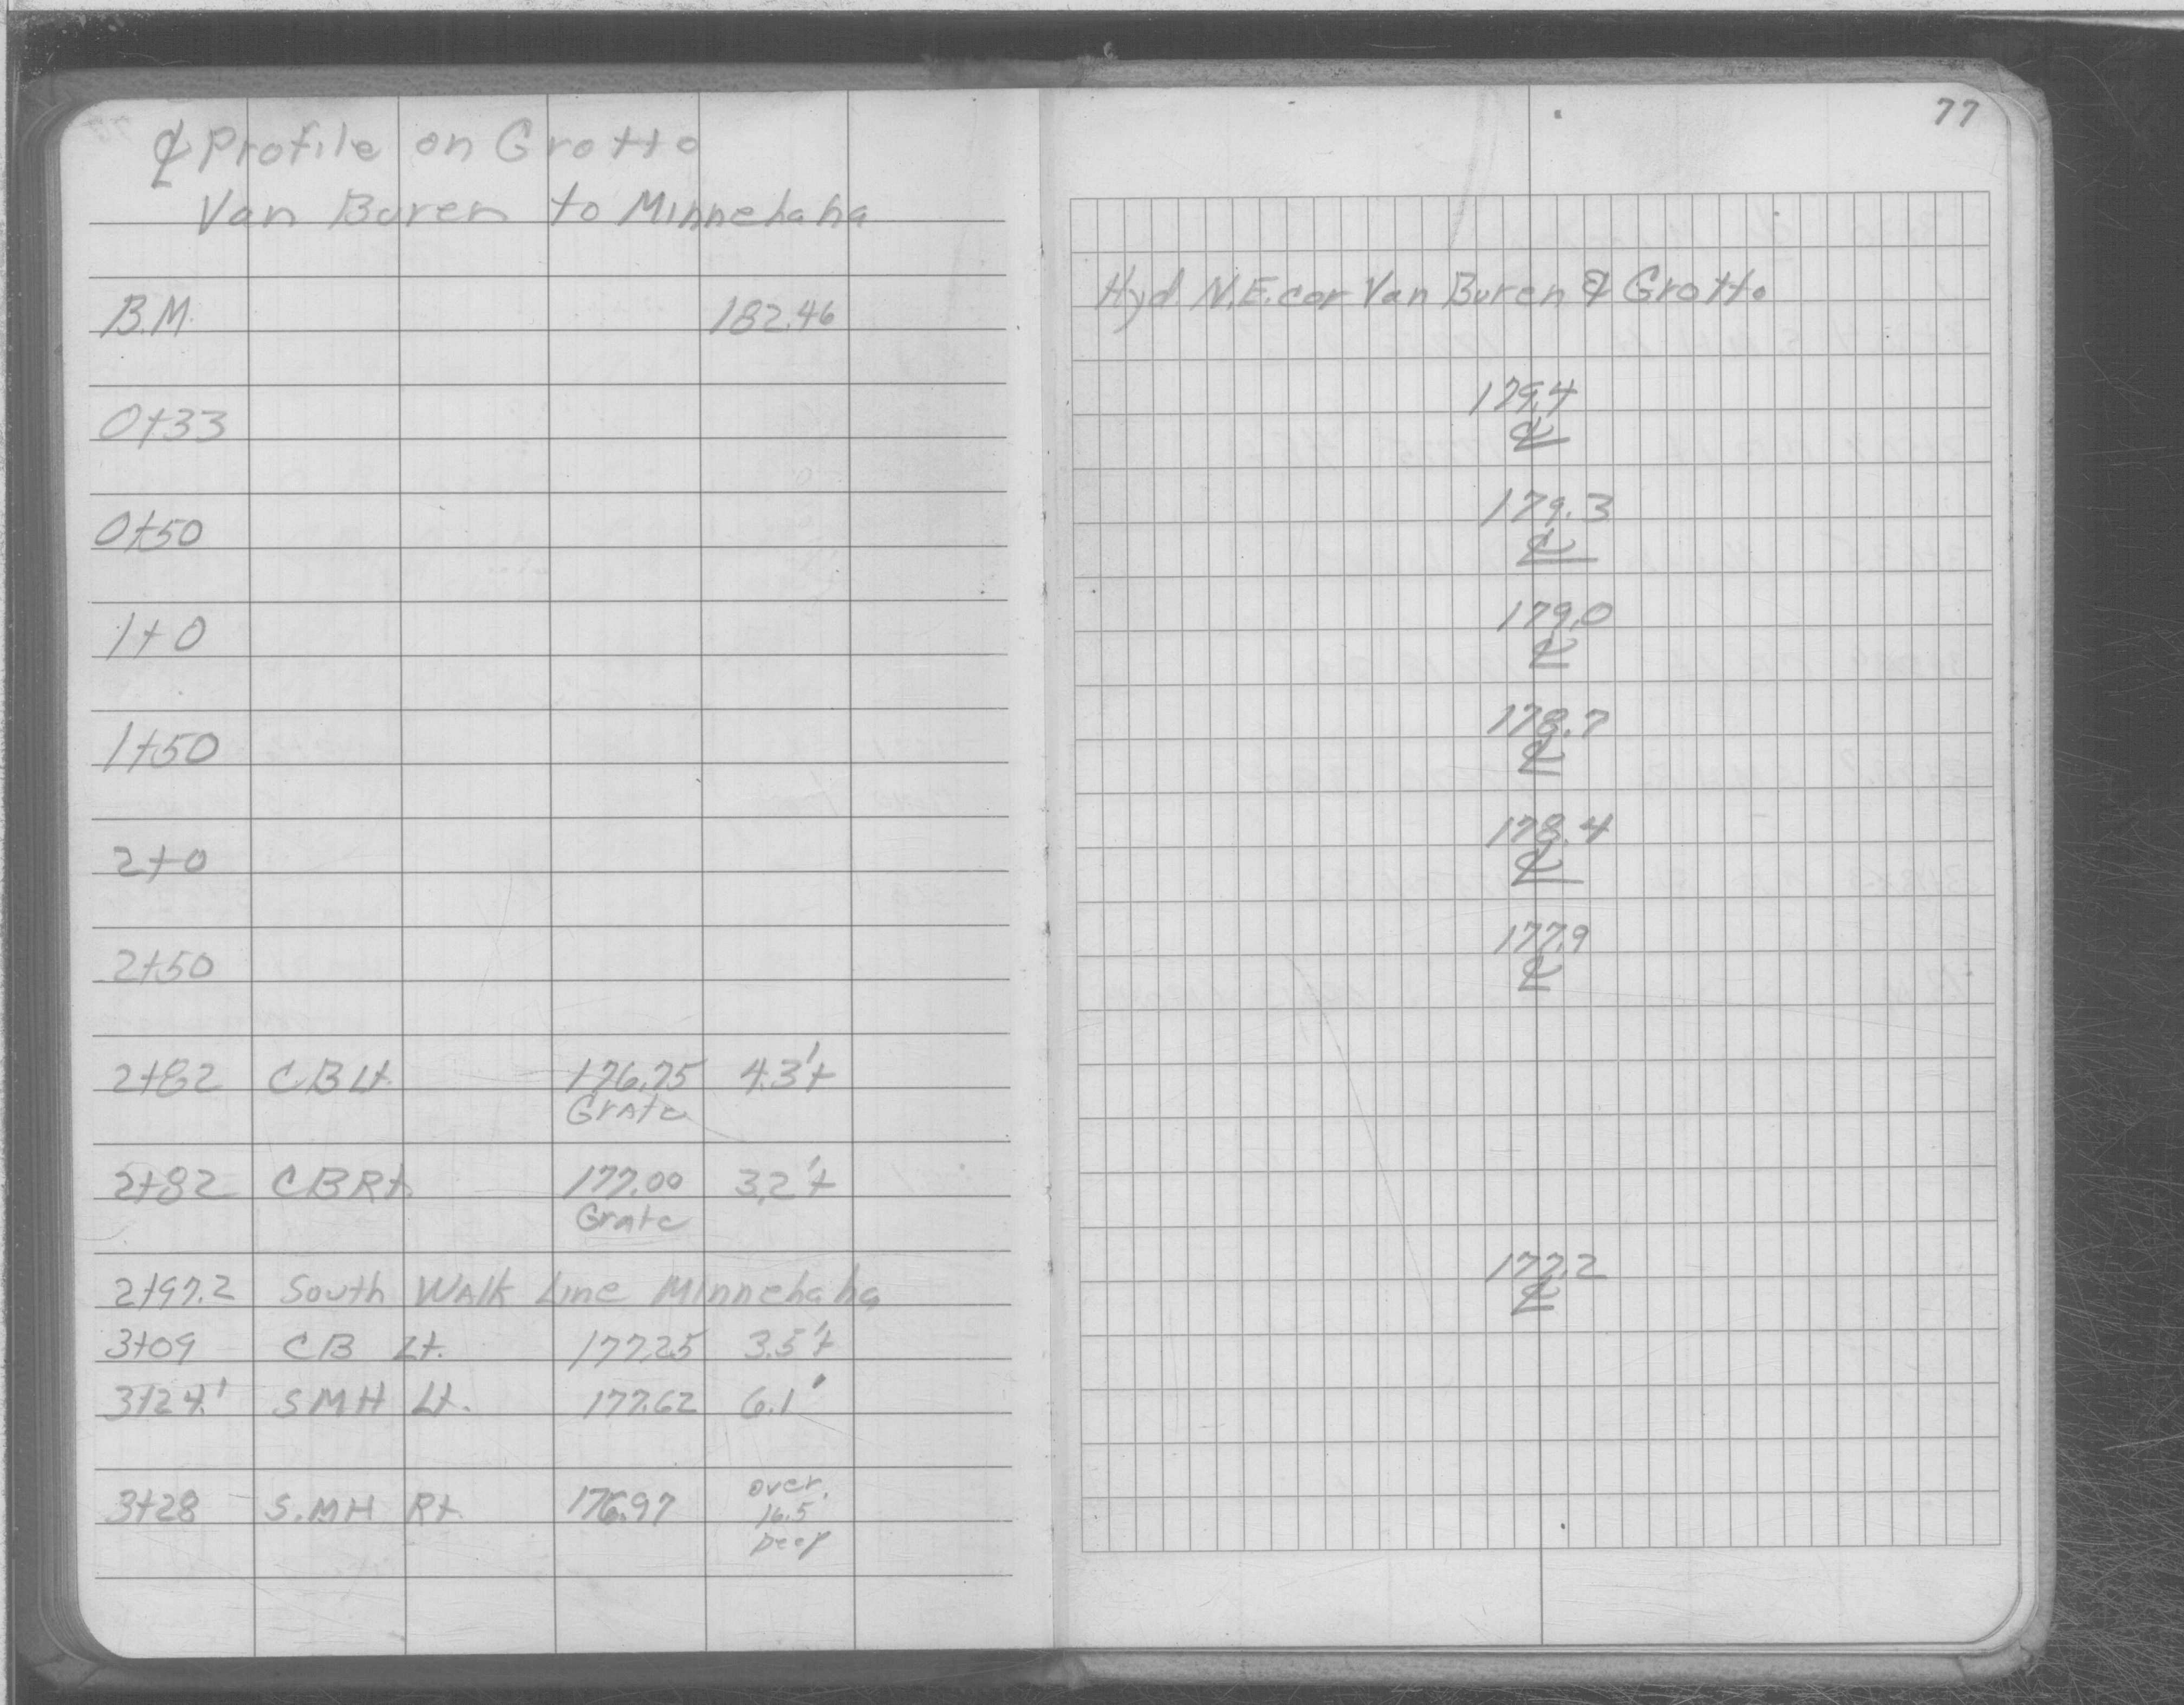 77
℄ Profile on Grotto
Van Buren to Minnehaha
B.M. 182.46 Hyd. N.E. cor Van Buren & Grotto
179.4
0+33 ℄
179.3
0+50 ℄
179.0
1+0 ℄
178.7
1+50 ℄
178.4
2+0 ℄
177.9
2+50 ℄
2+82 CB Lt. 176.75 4.3'±
Grate
2+82 CB Rt. 177.00 3.2'±
Grate
177.2
2+97.2 South Walk Line Minnehaha ℄
3+09 CB Lt. 177.25 3.5'±
3+24.' SMH Lt. 177.62 6.1'
over
3+28 S.MH Rt. 176.97 16.5
Deep